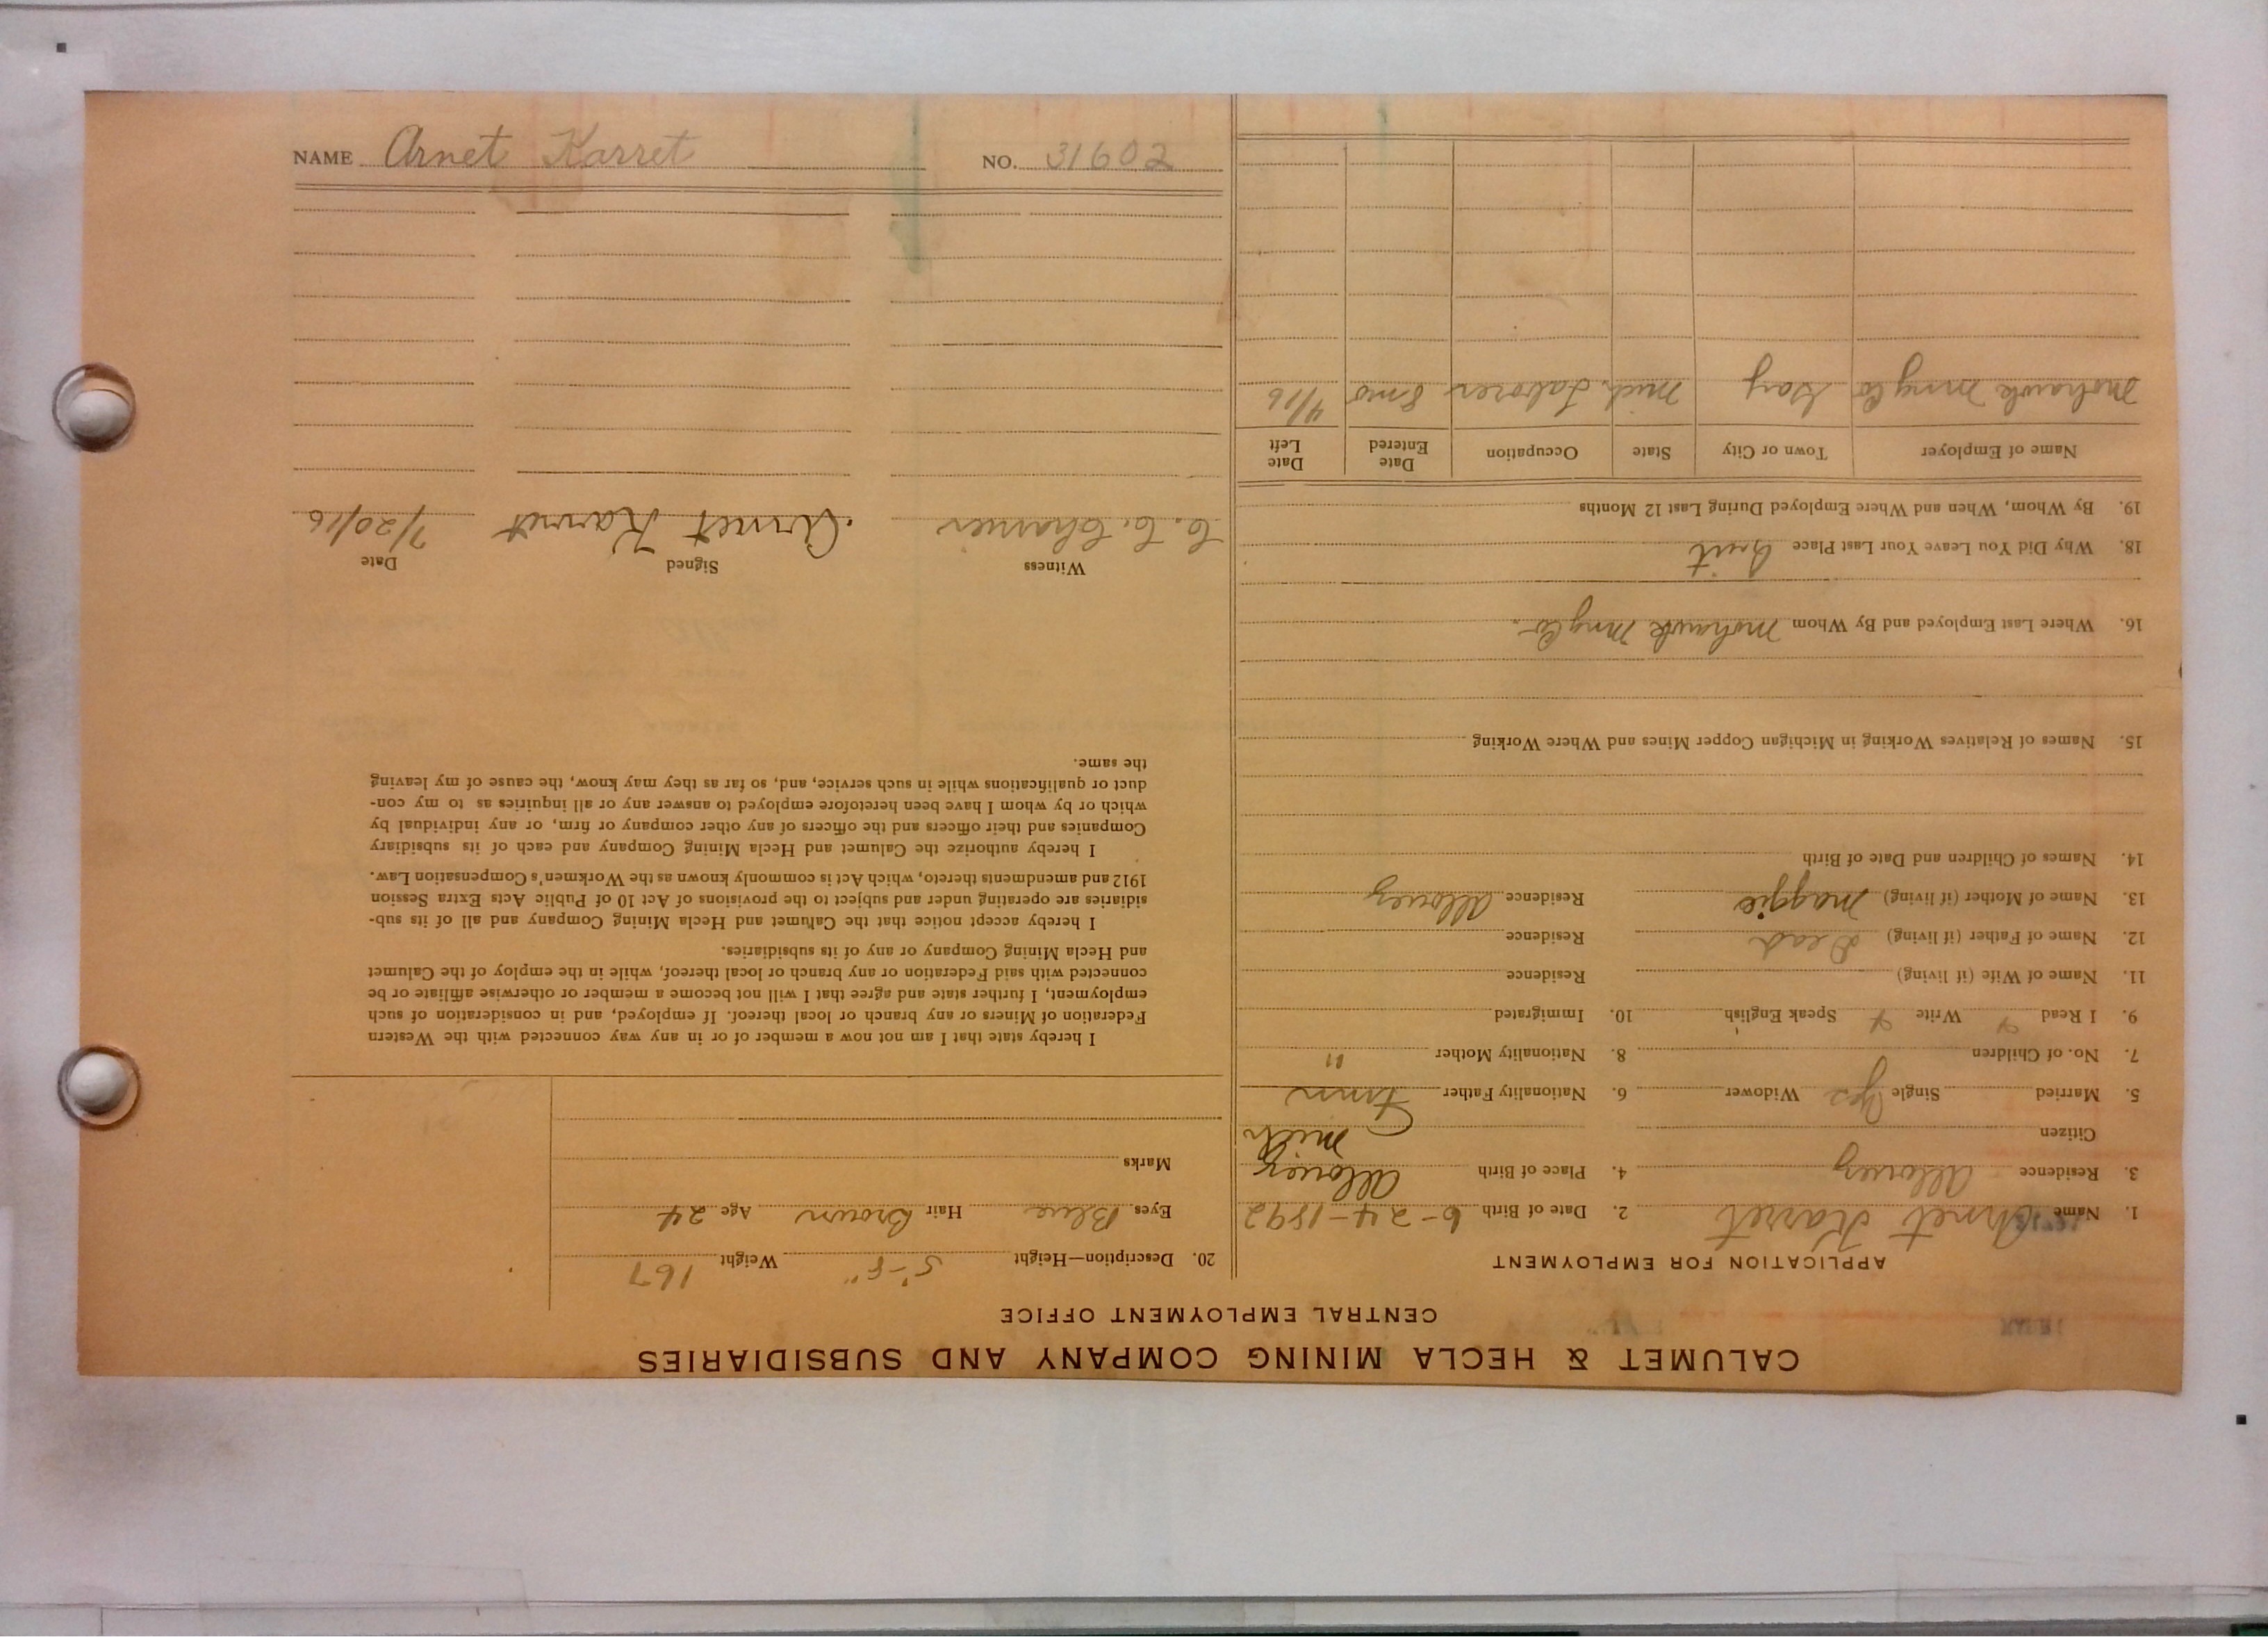 CALUMET & HECLA MINING COMPANY AND SUBSIDIARIES
CENTRAL EMPLOYMENT OFFICE
APPLICATION FOR EMPLOYMENT
1. Name Arnet Karret 2. Date of Birth 6-24-1892
3. Residence Allouez 4. Place of Birth Allouez
Citizen Mich
5. Married Single Yes Widower 6. Nationality Father Finn
7. No. of Children 8. Nationality Mother "
9. I Read Write Speak English 10. Immigrated
11. Name of Wife (if living) Residence
12. Name of Father (if living) Dead Residence
13. Name of Mother (if living) Maggie Residence Allouez
14. Names of Children and Date of Birth
15. Names of Relatives Working in Michigan Copper Mines and Where Working
16. Where Last Employed and By Whom Mohawk Mng Co.
18. Why Did You Leave Your Last Place Quit
19. By Whom, When and Where Employed During Last 12 Months
Name of Employer Town or City State Occupation Date Entered Date Left
Mohawk Mng Co Gay Mich Laborer 8 mo 4/16
20. Description—Height 5'-8" Weight 167
Eyes Blue Hair Brown Age 24
Marks
I hereby state that I am not now a member of or in any way connected with the Western
Federation of Miners or any branch or local thereof. If employed, and in consideration of such
employment, I further state and agree that I will not become a member or otherwise affiliate or be
connected with said Federation or any branch or local thereof, while in the employ of the Calumet
and Hecla Mining Company or any of its subsidiaries.
I hereby accept notice that the Calumet and Hecla Mining Company and all of its sub-
sidiaries are operating under and subject to the provisions of Act 10 of Public Acts Extra Session
1912 and amendments thereto, which Act is commonly known as the Workmen's Compensation Law.
I hereby authorize the Calumet and Hecla Mining Company and each of its subsidiary
Companies and their officers and the officers of any other company or firm, or any individual by
which or by whom I have been heretofore employed to answer any or all inquiries as to my con-
duct or qualifications while in such service, and, so far as they may know, the cause of my leaving
the same.
Witness Signed Date
C. C. Arnet Karret 7/20/16
NAME Arnet Karret NO. 31602